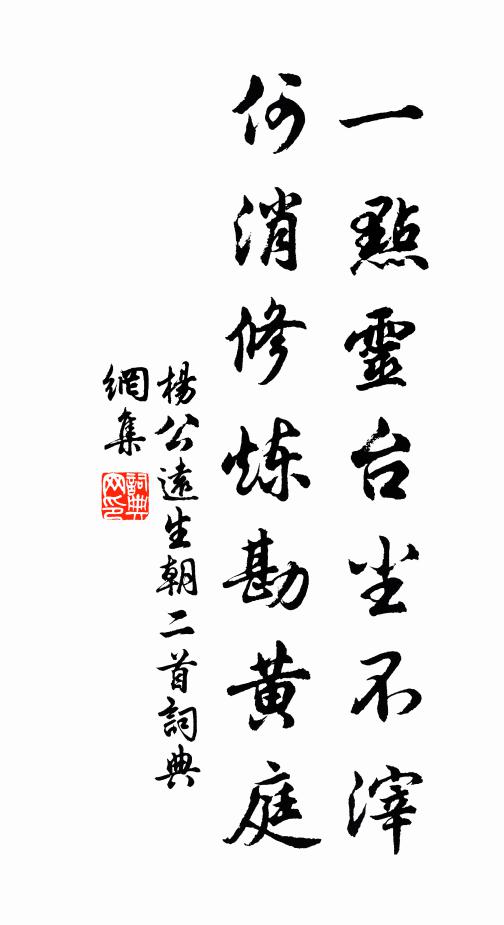 一點靈台尘不滓
何消修炼勘黄庭
楊公遠生朝二首詞典
網集
詞典網印